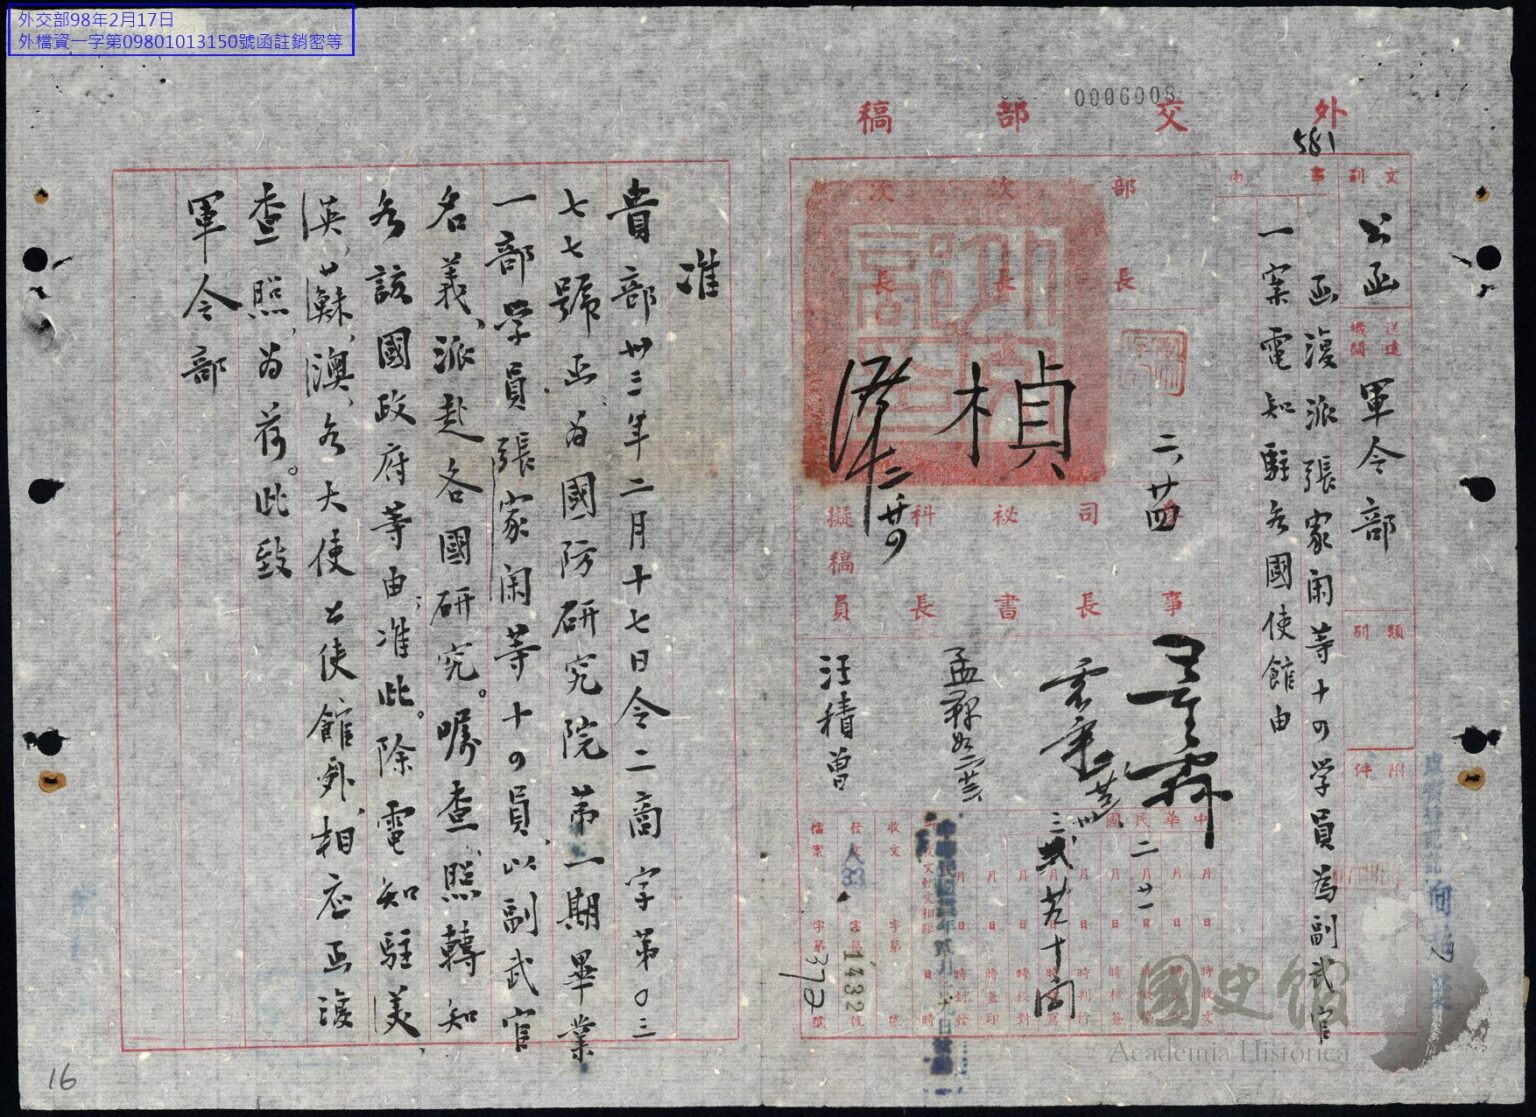 外交部98年2月17日
外檔資一字第09801013150號函註銷密等
0006008
外交部稿
581
文別
公函
送達機關
軍令部
類別
附件
事由
函復派張家閑等十四学員為副武官
一案電知駐各國使館由
部長
次長
次長
楨
二、廿四
司長
秘書
科長
擬稿員
汪積曾
中華民國
發文 字第1432號
收文 字第 號
檔案 字第372號
准
貴部卅三年二月十七日令二商字第〇三
七七號函、為國防研究院第一期畢業
一部学員張家閑等十四員、以副武官
名義、派赴各國研究。囑查照轉知
各該國政府等由、准此。除電知駐美、
英、蘇、澳、各大使公使館外、相应函復
查照、为荷。此致
軍令部
國史館
Academia Historica
16